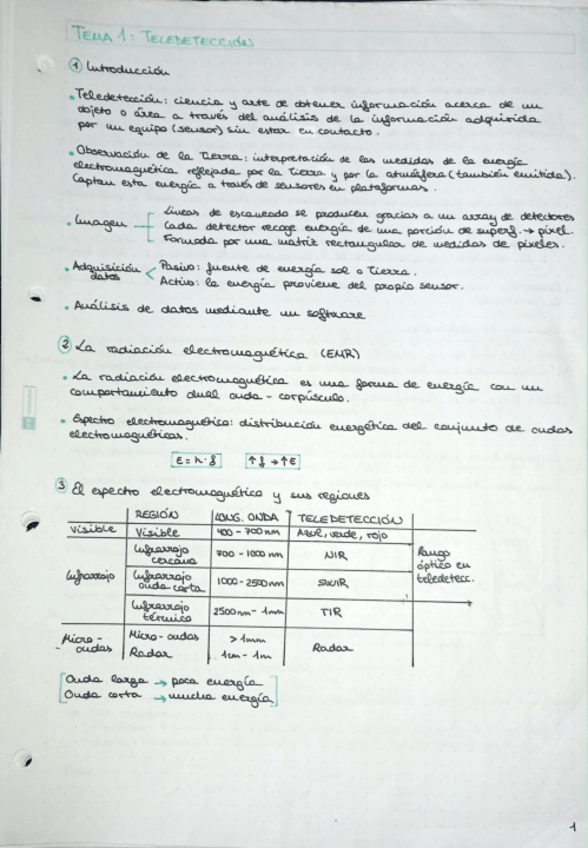 TEMA 1: TELEDETECCIÓN
① Introducción
• Teledetección: ciencia y arte de obtener información acerca de un
objeto o área a través del análisis de la información adquirida
por un equipo (sensor) sin estar en contacto.
• Observación de la Tierra: interpretación de las medidas de la energía
electromagnética reflejada por la Tierra y por la atmósfera (también emitida).
Captan esta energía a través de sensores en plataformas.
• Imagen
Líneas de escaneado se producen gracias a un array de detectores
Cada detector recoge energía de una porción de superf. → píxel.
Formada por una matriz rectangular de medidas de píxeles.
• Adquisición datos
Pasivo: fuente de energía sol o Tierra.
Activo: la energía proviene del propio sensor.
• Análisis de datos mediante un software
② La radiación electromagnética (EMR)
• La radiación electromagnética es una forma de energía con un
comportamiento dual onda - corpúsculo.
• Espectro electromagnético: distribución energética del conjunto de ondas
electromagnéticas.
E = h · f ↑ f → ↑ E
③ El espectro electromagnético y sus regiones
REGIÓN LONG. ONDA TELEDETECCIÓN
Visible Visible 400 - 700 nm Azul, verde, rojo
Infrarrojo Infrarrojo cercano 700 - 1000 nm NIR Rango óptico en teledetecc.
Infrarrojo onda corta 1000 - 2500 nm SWIR
Infrarrojo térmico 2500 nm - 1mm TIR
Micro-ondas Micro-ondas > 1mm Radar
Radar 1cm - 1m
Onda larga → poca energía
Onda corta → mucha energía
1